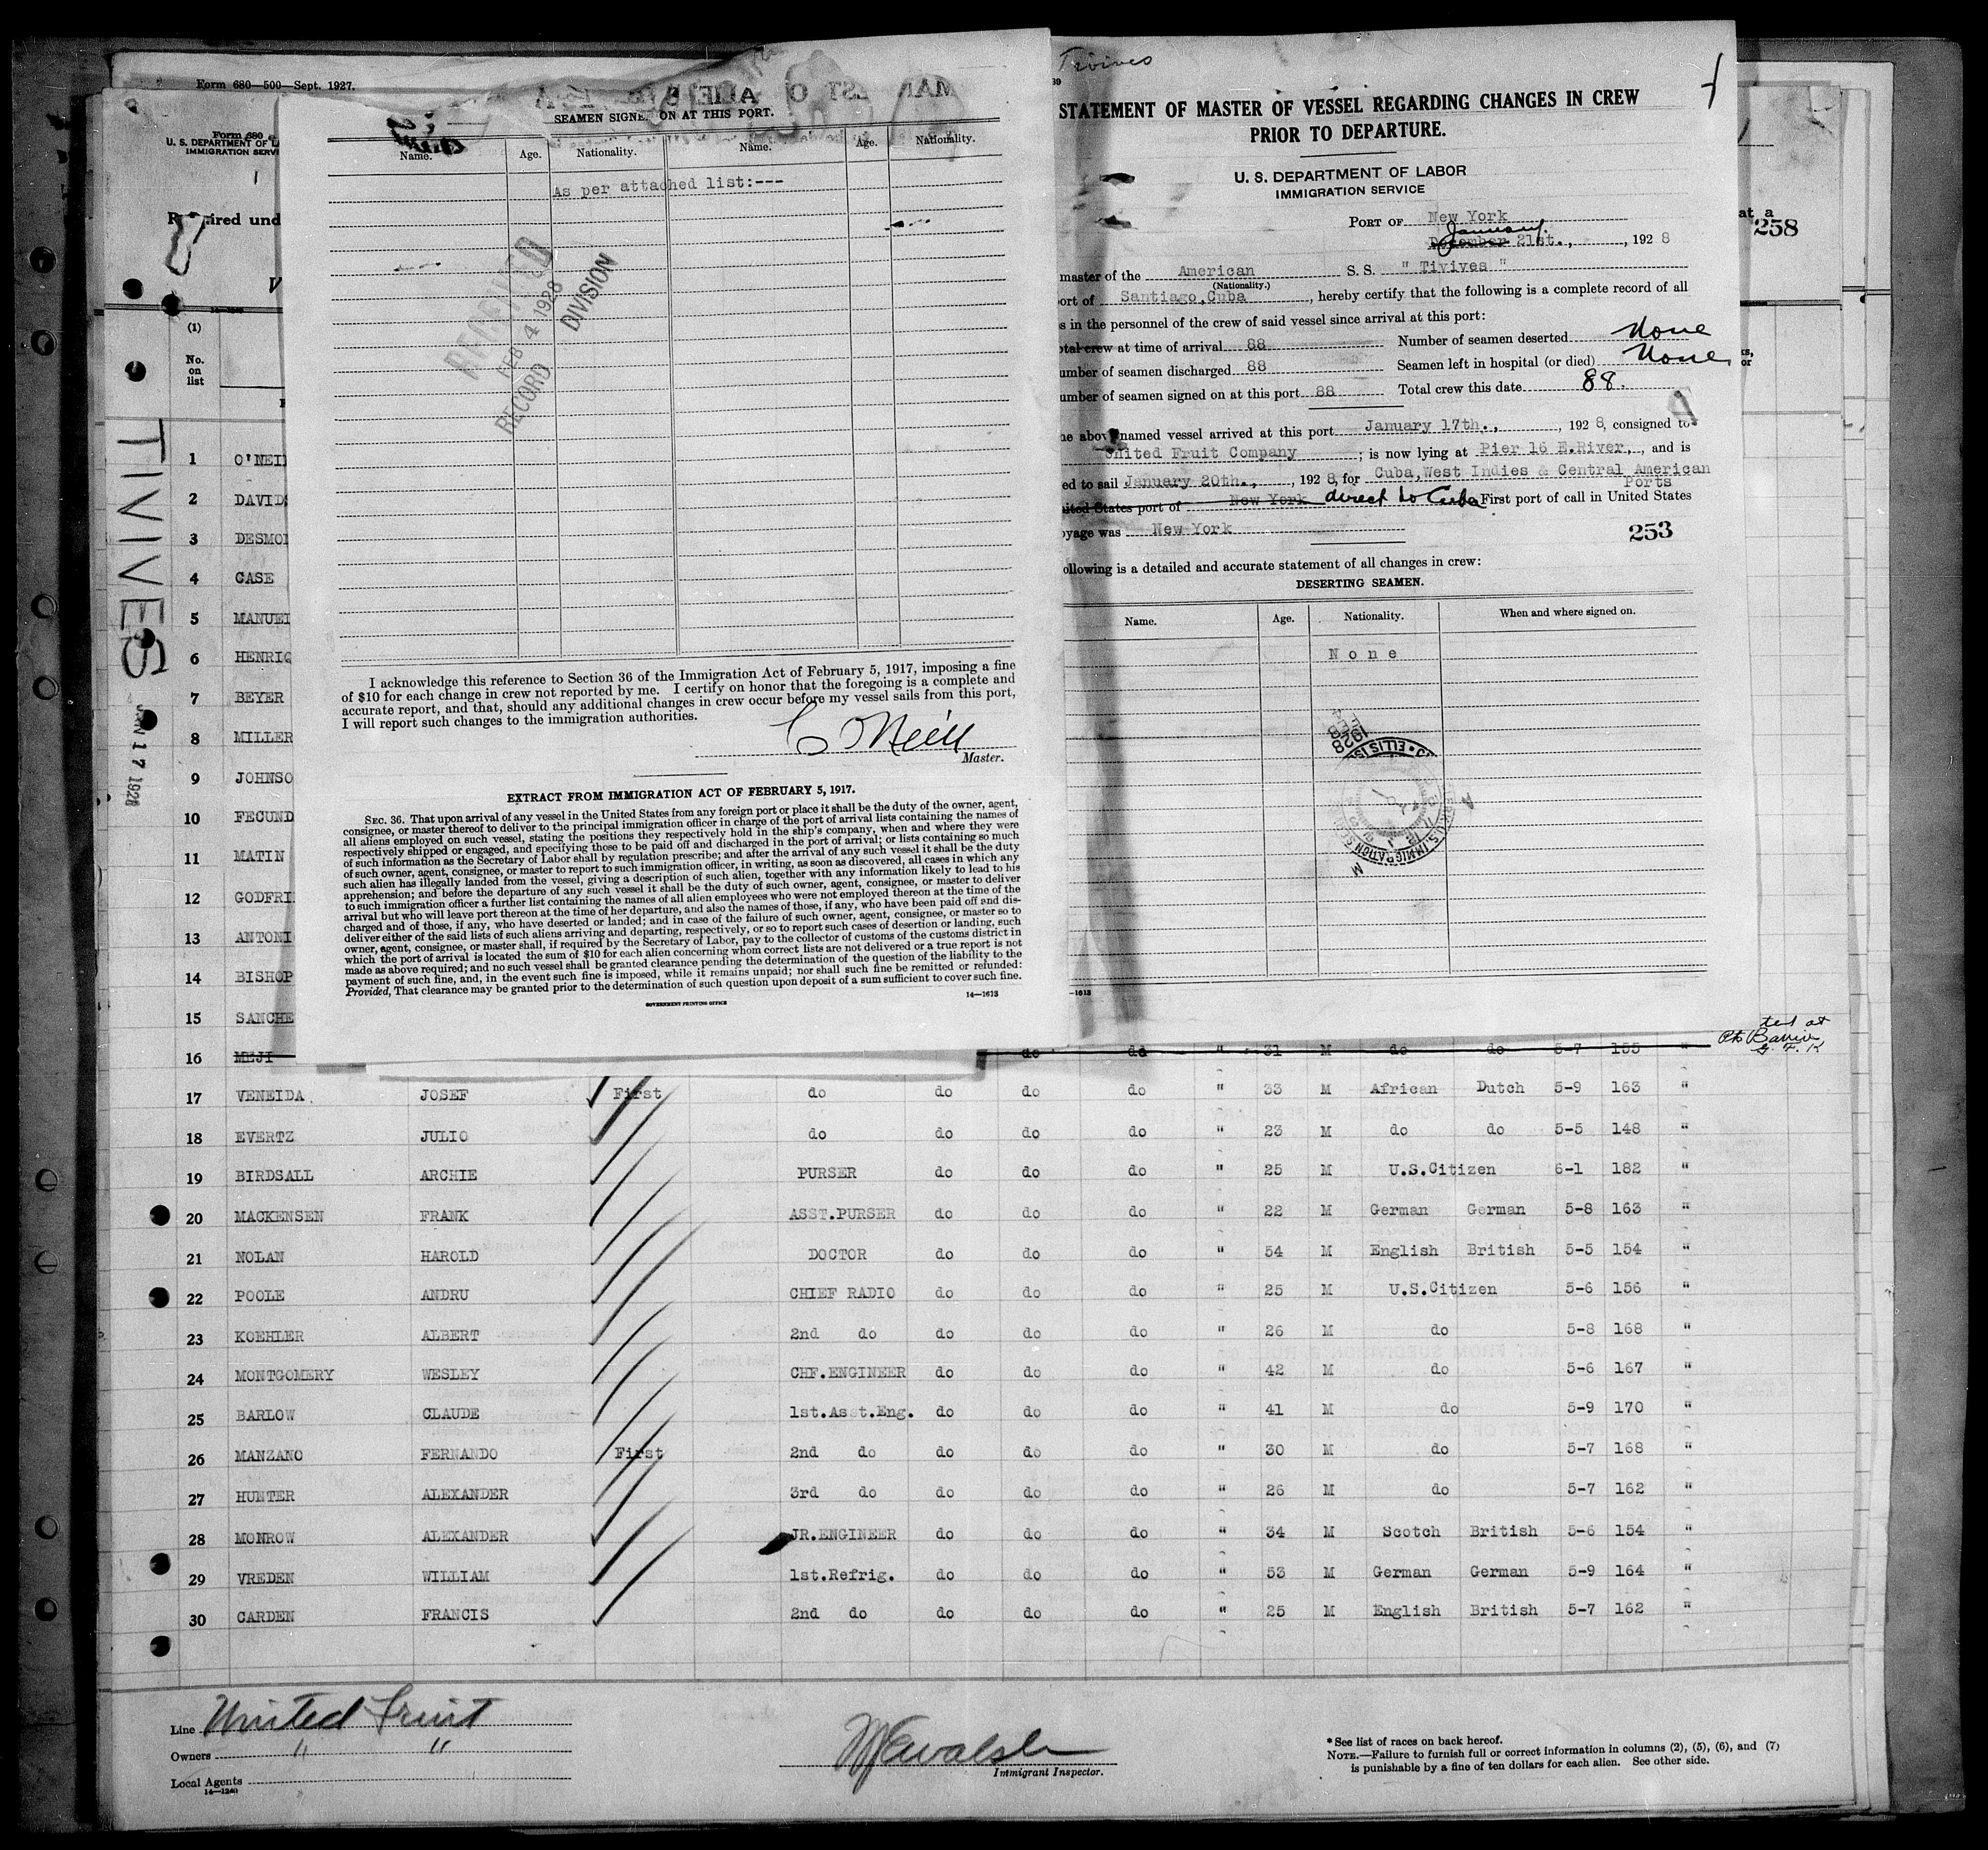 Form 680—500—Sept. 1927.
Form 680
U. S. DEPARTMENT OF LA
IMMIGRATION SERVI
ired und
V
(1)
No.
on
list
TIVIVES
JAN 17 1928
SEAMEN SIGNED ON AT THIS PORT.
Name. Age. Nationality. Name. Age. Nationality.
As per attached list:---
RECEIVED
FEB 4 1928
RECORD DIVISION
I acknowledge this reference to Section 36 of the Immigration Act of February 5, 1917, imposing a fine
of $10 for each change in crew not reported by me. I certify on honor that the foregoing is a complete and
accurate report, and that, should any additional changes in crew occur before my vessel sails from this port,
I will report such changes to the immigration authorities.
C O'Neill
Master.
EXTRACT FROM IMMIGRATION ACT OF FEBRUARY 5, 1917.
SEC. 36. That upon arrival of any vessel in the United States from any foreign port or place it shall be the duty of the owner, agent,
consignee, or master thereof to deliver to the principal immigration officer in charge of the port of arrival lists containing the names of
all aliens employed on such vessel, stating the positions they respectively hold in the ship's company, when and where they were
respectively shipped or engaged, and specifying those to be paid off and discharged in the port of arrival; or lists containing so much
of such information as the Secretary of Labor shall by regulation prescribe; and after the arrival of any such vessel it shall be the duty
of such owner, agent, consignee, or master to report to such immigration officer, in writing, as soon as discovered, all cases in which any
such alien has illegally landed from the vessel, giving a description of such alien, together with any information likely to lead to his
apprehension; and before the departure of any such vessel it shall be the duty of such owner, agent, consignee, or master to deliver
to such immigration officer a further list containing the names of all alien employees who were not employed thereon at the time of the
arrival but who will leave port thereon at the time of her departure, and also the names of those, if any, who have been paid off and dis-
charged and of those, if any, who have deserted or landed; and in case of the failure of such owner, agent, consignee, or master so to
deliver either of the said lists of such aliens arriving and departing, respectively, or so to report such cases of desertion or landing, such
owner, agent, consignee, or master shall, if required by the Secretary of Labor, pay to the collector of customs of the customs district in
which the port of arrival is located the sum of $10 for each alien concerning whom correct lists are not delivered or a true report is not
made as above required; and no such vessel shall be granted clearance pending the determination of the question of the liability to the
payment of such fine, and, in the event such fine is imposed, while it remains unpaid; nor shall such fine be remitted or refunded:
Provided, That clearance may be granted prior to the determination of such question upon deposit of a sum sufficient to cover such fine.
GOVERNMENT PRINTING OFFICE
14—1613
Tivives
STATEMENT OF MASTER OF VESSEL REGARDING CHANGES IN CREW
PRIOR TO DEPARTURE.
U. S. DEPARTMENT OF LABOR
IMMIGRATION SERVICE
PORT OF New York
January
December 21st., , 192 8
at a
258
master of the American S. S. " Tivives "
(Nationality.)
ort of Santiago,Cuba , hereby certify that the following is a complete record of all
s in the personnel of the crew of said vessel since arrival at this port:
otal crew at time of arrival 88 Number of seamen deserted None
umber of seamen discharged 88 Seamen left in hospital (or died) None
umber of seamen signed on at this port 88 Total crew this date 88.
he above named vessel arrived at this port January 17th., , 192 8, consigned to
United Fruit Company ; is now lying at Pier 16 E.River, , and is
ed to sail January 20th., , 192 8, for Cuba,West Indies & Central American
Ports
ited States port of New York direct to Cuba First port of call in United States
oyage was New York
253
ollowing is a detailed and accurate statement of all changes in crew:
DESERTING SEAMEN.
Name. Age. Nationality. When and where signed on.
None
FEB 4 1928
ELLIS IS
U.S. IMMIGRATION
—1613
1 O'NEI
2 DAVIDS
3 DESMON
4 CASE
5 MANUEL
6 HENRIQ
7 BEYER
8 MILLER
9 JOHNSO
10 FECUND
11 MATIN
12 GODFRI
13 ANTONI
14 BISHOP
15 SANCHE
ted at
Pto Barrios
G. F. K
16 MEJI do do " 31 M do do 5-7 155 "
17 VENEIDA JOSEF First do do do do " 33 M African Dutch 5-9 163 "
18 EVERTZ JULIO do do do do " 23 M do do 5-5 148 "
19 BIRDSALL ARCHIE PURSER do do do " 25 M U.S.Citizen 6-1 182 "
20 MACKENSEN FRANK ASST.PURSER do do do " 22 M German German 5-8 163 "
21 NOLAN HAROLD DOCTOR do do do " 54 M English British 5-5 154 "
22 POOLE ANDRU CHIEF RADIO do do do " 25 M U.S.Citizen 5-6 156 "
23 KOEHLER ALBERT 2nd do do do do " 26 M do 5-8 168 "
24 MONTGOMERY WESLEY CHF.ENGINEER do do do " 42 M do 5-6 167 "
25 BARLOW CLAUDE 1st.Asst.Eng. do do do " 41 M do 5-9 170 "
26 MANZANO FERNANDO First 2nd do do do do " 30 M do 5-7 168 "
27 HUNTER ALEXANDER 3rd do do do do " 26 M do 5-7 162 "
28 MONROW ALEXANDER JR.ENGINEER do do do " 34 M Scotch British 5-6 154 "
29 VREDEN WILLIAM 1st.Refrig. do do do " 53 M German German 5-9 164 "
30 CARDEN FRANCIS 2nd do do do do " 25 M English British 5-7 162 "
Line United Fruit
Owners " "
Local Agents
14—1240
Immigrant Inspector.
* See list of races on back hereof.
NOTE.—Failure to furnish full or correct information in columns (2), (5), (6), and (7)
is punishable by a fine of ten dollars for each alien. See other side.